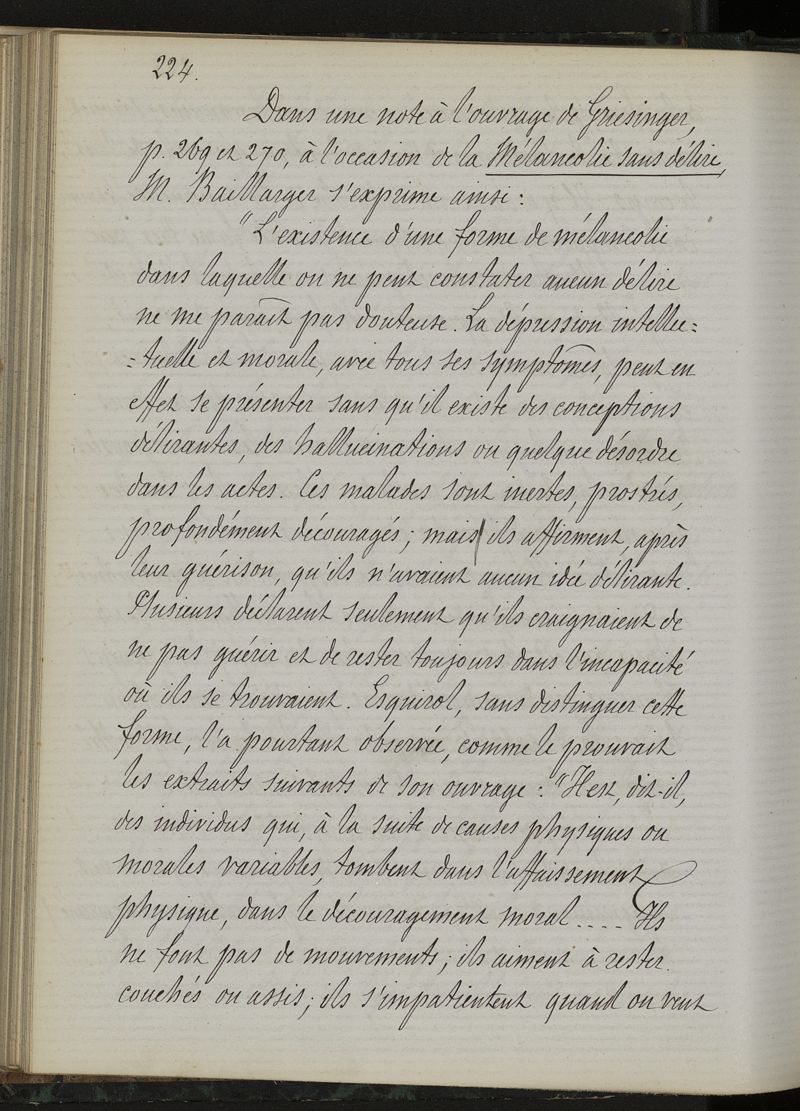 224.
Dans une note à l'ouvrage de Griesinger,
p. 269 et 270, à l'occasion de la Mélancolie sans délire,
M. Baillarger s'exprime ainsi :
"L'existence d'une forme de mélancolie
dans laquelle on ne peut constater aucun délire
ne me paraît pas douteuse. La dépression intellec=
=tuelle et morale, avec tous ses symptômes, peut en
effet se présenter sans qu'il existe des conceptions
délirantes, des hallucinations ou quelque désordre
dans les actes. Ces malades sont inertes, prostrés,
profondément découragés ; mais ils affirment, après
leur guérison, qu'ils n'avaient aucun idée délirante.
Plusieurs déclarent seulement qu'ils craignaient de
ne pas guérir et de rester toujours dans l'incapacité
où ils se trouvaient. Esquirol, sans distinguer cette
forme, l'a pourtant observée, comme le prouvait
les extraits suivants de son ouvrage : "Il est, dit-il,
des individus qui, à la suite de causes physiques ou
morales variables, tombent dans l'affaissement
physique, dans le découragement moral .... Ils
ne font pas de mouvements ; ils aiment à rester
couchés ou assis ; ils s'impatientent quand on veut